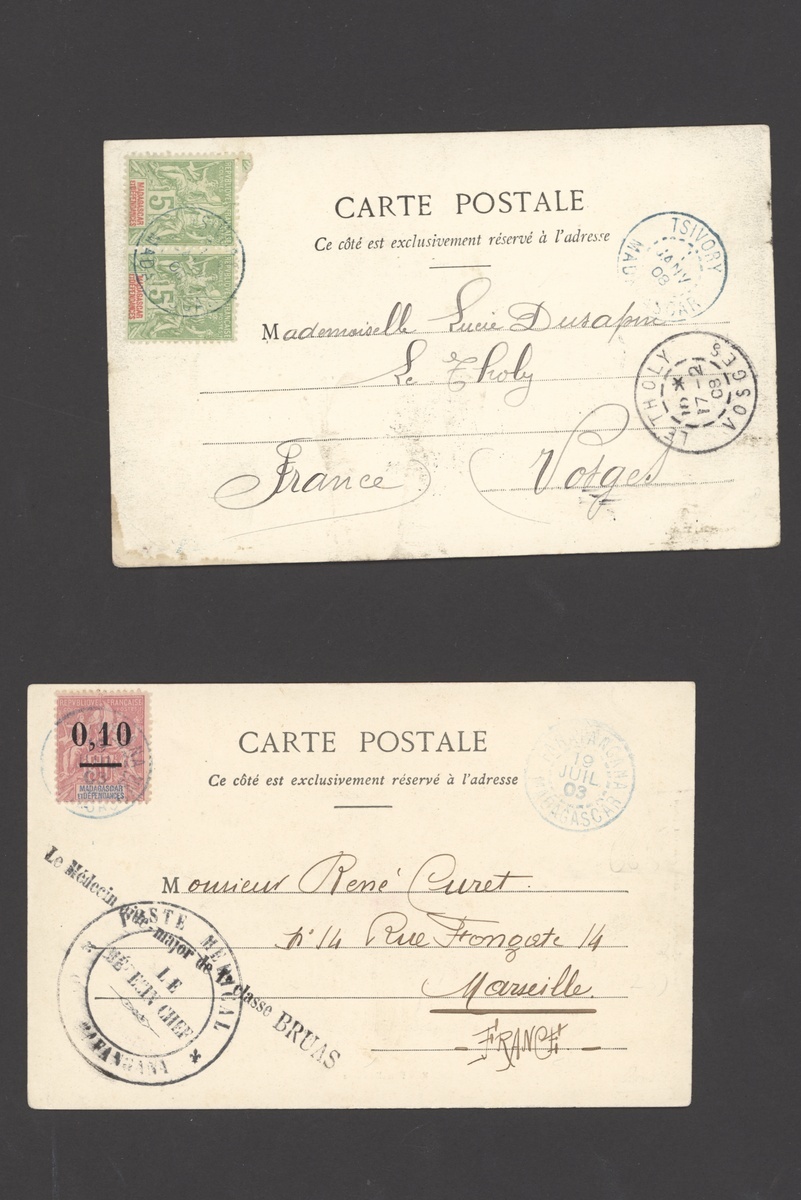 MADAGASCAR
ET DÉPENDANCES
5
MADAGASCAR
ET DÉPENDANCES
5
CARTE POSTALE
Ce côté est exclusivement réservé à l'adresse
TSIVORY
JANV
08
Mademoiselle Lucie Dusapin
Le Tholy
France Vosges
LE THOLY
VOSGES
5 *
17 - 2
08
RÉPUBLIQUE FRANÇAISE
0,10
MADAGASCAR
ET DÉPENDANCES
CARTE POSTALE
Ce côté est exclusivement réservé à l'adresse
19
JUIL
03
MADAGASCAR
Monsieur René Curet
n° 14 Rue Fongate 14
Marseille.
- FRANCE -
Le Médecin aide-major de 1re classe BRUAS
POSTE MÉDICAL
LE
MÉDECIN CHEF